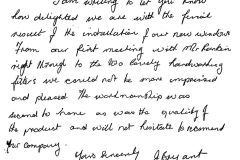 I am writing to let you know
how delighted we are with the finial
result of the installation of our new windows
From our first meeting with Mr. Rankin
right through to the two lovely hardworking
fitters we could not be more impressed
and pleased. The workmanship was
second to none as was the quality of
the product and will not hesitate to recomend
your company.
Yours Sincerely